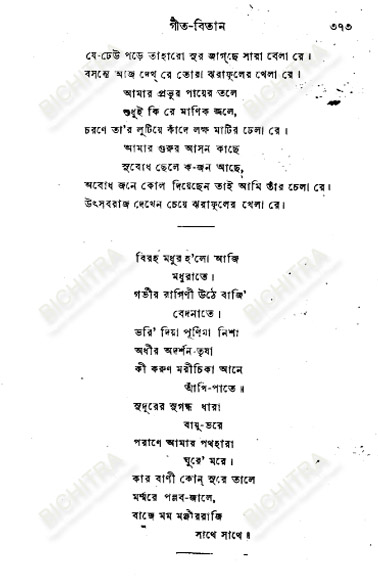 গীত-বিতান ৩৭৩
যে-ঢেউ পড়ে তাহারো সুর জাগ্‌ছে সারা বেলা রে।
বসন্তে আজ দেখ্‌ রে তোরা ঝরাফুলের খেলা রে।
আমার প্রভুর পায়ের তলে
শুধুই কি রে মাণিক জ্বলে,
চরণে তা'র লুটিয়ে কাঁদে লক্ষ মাটির ঢেলা রে।
আমার গুরুর আসন কাছে
সুবোধ ছেলে ক-জন আছে,
অবোধ জনে কোল দিয়েছেন তাই আমি তাঁর চেলা রে।
উৎসবরাজ দেখেন চেয়ে ঝরাফুলের খেলা রে।
বিরহ মধুর হ'লো আজি
মধুরাতে।
গভীর রাগিণী উঠে বাজি'
বেদনাতে।
ভরি' দিয়া পূর্ণিমা নিশা
অধীর অদর্শন-তৃষা
কী করুণ মরীচিকা আনে
আঁখি-পাতে॥
সুদূরের সুগন্ধ ধারা
বায়ু-ভরে
পরাণে আমার পথহারা
ঘুরে' মরে।
কার বাণী কোন্‌ সুরে তালে
মর্ম্মরে পল্লব-জালে,
বাজে মম মঞ্জীররাজি
সাথে সাথে॥
BICHITRA
BICHITRA
BICHITRA
BICHITRA
BICHITRA
BICHITRA